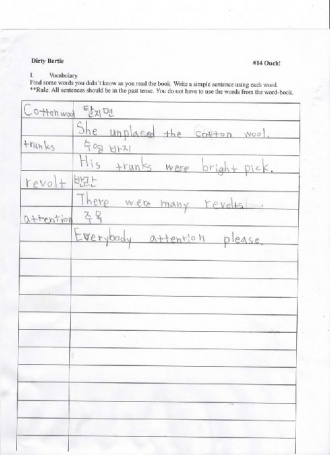 Dirty Bertie
#14 Ouch!
I. Vocabulary
Find some words you didn't know as you read the book. Write a simple sentence using each word.
**Rule: All sentences should be in the past tense. You do not have to use the words from the word-book.
Cotton wool 탈지면
She unplaced the cotton wool.
trunks 수영 바지
His trunks were bright pick.
revolt 반란
There were many revolts.
attention 주목
Everybody attention please.